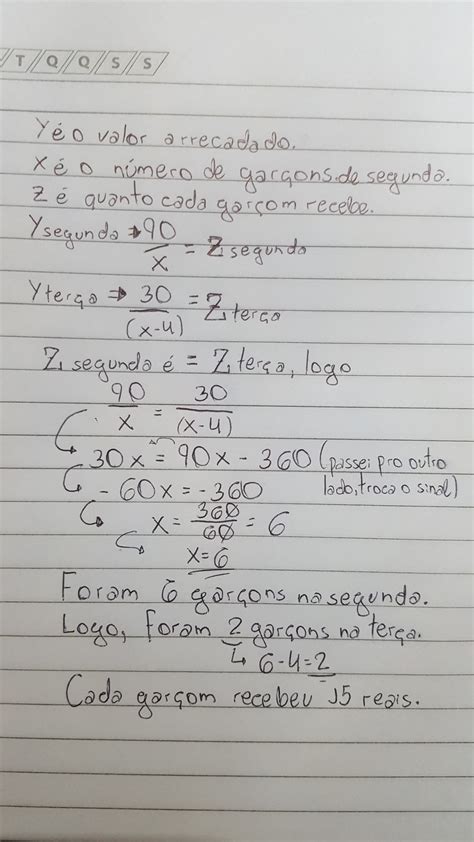 T Q Q S S
Y é o valor arrecadado.
X é o número de garçons de segunda.
Z é quanto cada garçom recebe.
Y segunda → 90/x = Z segunda
Y terça ⇒ 30/(x-4) = Z terça
Z segunda é = Z terça, logo
90/x = 30/(x-4)
30x = 90x - 360 (passei pro outro
- 60x = - 360 lado, troca o sinal)
x = 360/60 = 6
x = 6
Foram 6 garçons na segunda.
Logo, foram 2 garçons na terça.
↳ 6-4=2
Cada garçom recebeu 15 reais.